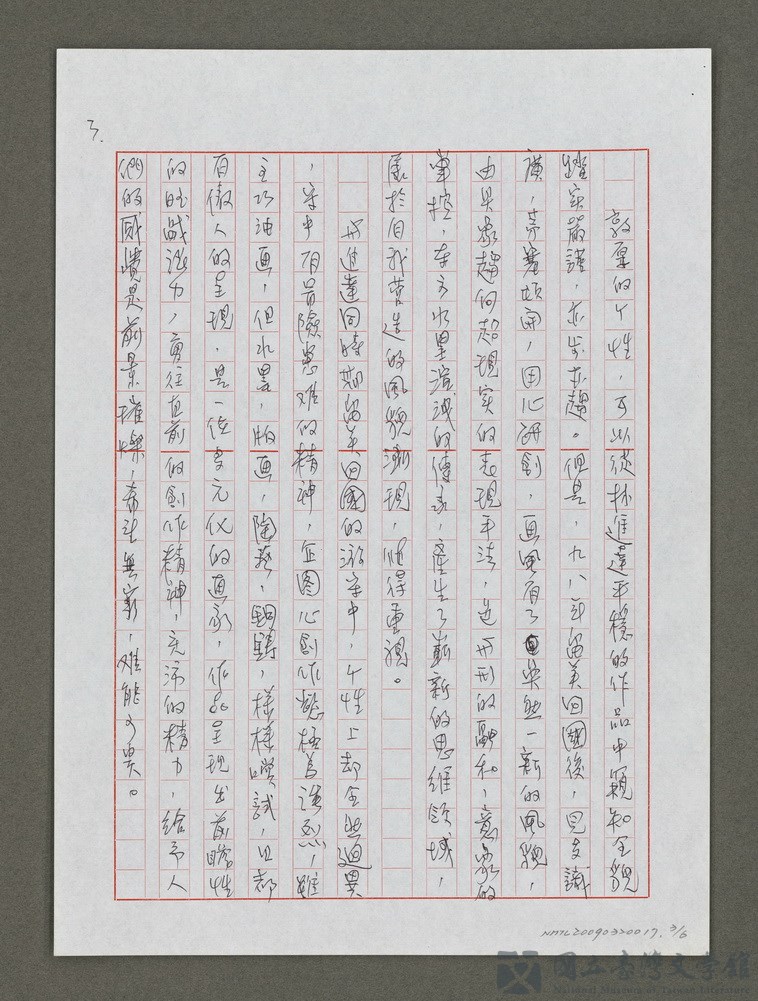 3.
敦厚的个性，可以從林進達平穩的作品中窺知全貌
踏实嚴謹，亦步亦趨。但是，九八年留美回國後，見支識
廣，茅塞頓開，用心研創，画風有了奐然一新的風貌，
由具象趨向超現实的表現手法，造形的融和，意象的
掌控，在水墨渲淺的傳承，產生了嶄新的思維領域，
属於自我营造的風貌漸現，值得重視。
与進達同時期留美回國的游守中，个性上却全然迥異
，守中有冒險患难的精神，企图心創作慾極為強烈，雖
主功油画，但水墨，版画，陶藝，銅鑄，樣樣嘗試，且都
有傲人的呈現，是一位多元化的画家，作品呈現出前瞻性
的旺盛活力，勇往直前的創作精神，充沛的精力，給予人
們的感覺是前景璀燦，希望無窮，难能可貴。
NMTL20090320017, 3/6
國立臺灣文學館
National Museum of Taiwan Literature